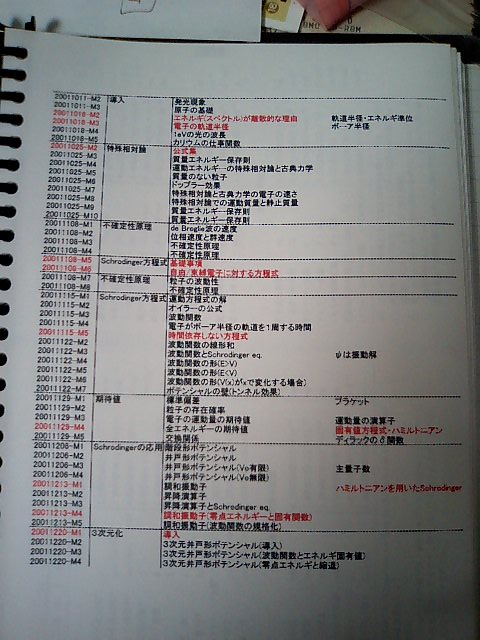 20011011-M2 導入 発光現象
20011011-M3 原子の基礎
20011018-M2 エネルギ(スペクトル)が離散的な理由 軌道半径・エネルギ準位
20011018-M3 電子の軌道半径 ボーア半径
20011018-M4 1eVの光の波長
20011018-M5 カリウムの仕事関数
20011025-M2 特殊相対論 公式集
20011025-M3 質量エネルギー保存則
20011025-M4 運動エネルギーの特殊相対論と古典力学
20011025-M5 質量のない粒子
20011025-M6 ドップラー効果
20011025-M7 特殊相対論と古典力学の電子の速さ
20011025-M8 特殊相対論での運動質量と静止質量
20011025-M9 質量エネルギー保存則
20011025-M10 質量エネルギー保存則
20011108-M1 不確定性原理 de Broglie波の速度
20011108-M2 位相速度と群速度
20011108-M3 不確定性原理
20011108-M4 不確定性原理
20011108-M5 Schrodinger方程式 基礎事項
20011108-M6 自由/束縛電子に対する方程式
20011108-M7 不確定性原理 粒子の波動性
20011108-M8 不確定性原理
20011115-M1 Schrodinger方程式 運動方程式の解
20011115-M2 オイラーの公式
20011115-M3 波動関数
20011115-M4 電子がボーア半径の軌道を1周する時間
20011115-M5 時間依存しない方程式
20011122-M2 波動関数の線形和
20011122-M3 波動関数とSchrodinger eq. ψは振動解
20011122-M4 波動関数の形(E>V)
20011122-M5 波動関数の形(E<V)
20011122-M6 波動関数の形(V(x)がxで変化する場合)
20011122-M7 ポテンシャルの壁(トンネル効果)
20011129-M1 期待値 標準偏差 ブラケット
20011129-M2 粒子の存在確率
20011129-M3 電子の運動量の期待値 運動量の演算子
20011129-M4 全エネルギーの期待値 固有値方程式・ハミルトニアン
20011129-M5 交換関係 ディラックのδ関数
20011206-M1 Schrodingerの応用 階段形ポテンシャル
20011206-M2 井戸形ポテンシャル
20011206-M3 井戸形ポテンシャル(Vo有限) 主量子数
20011206-M4 井戸形ポテンシャル(Vo無限)
20011213-M1 調和振動子 ハミルトニアンを用いたSchrodinger
20011213-M2 昇降演算子
20011213-M3 昇降演算子とSchrodinger eq.
20011213-M4 調和振動子(零点エネルギーと固有関数)
20011213-M5 調和振動子(波動関数の規格化)
20011220-M1 3次元化 導入
20011220-M2 3次元井戸形ポテンシャル(導入)
20011220-M3 3次元井戸形ポテンシャル(波動関数とエネルギ固有値)
20011220-M4 3次元井戸形ポテンシャル(零点エネルギと縮退)